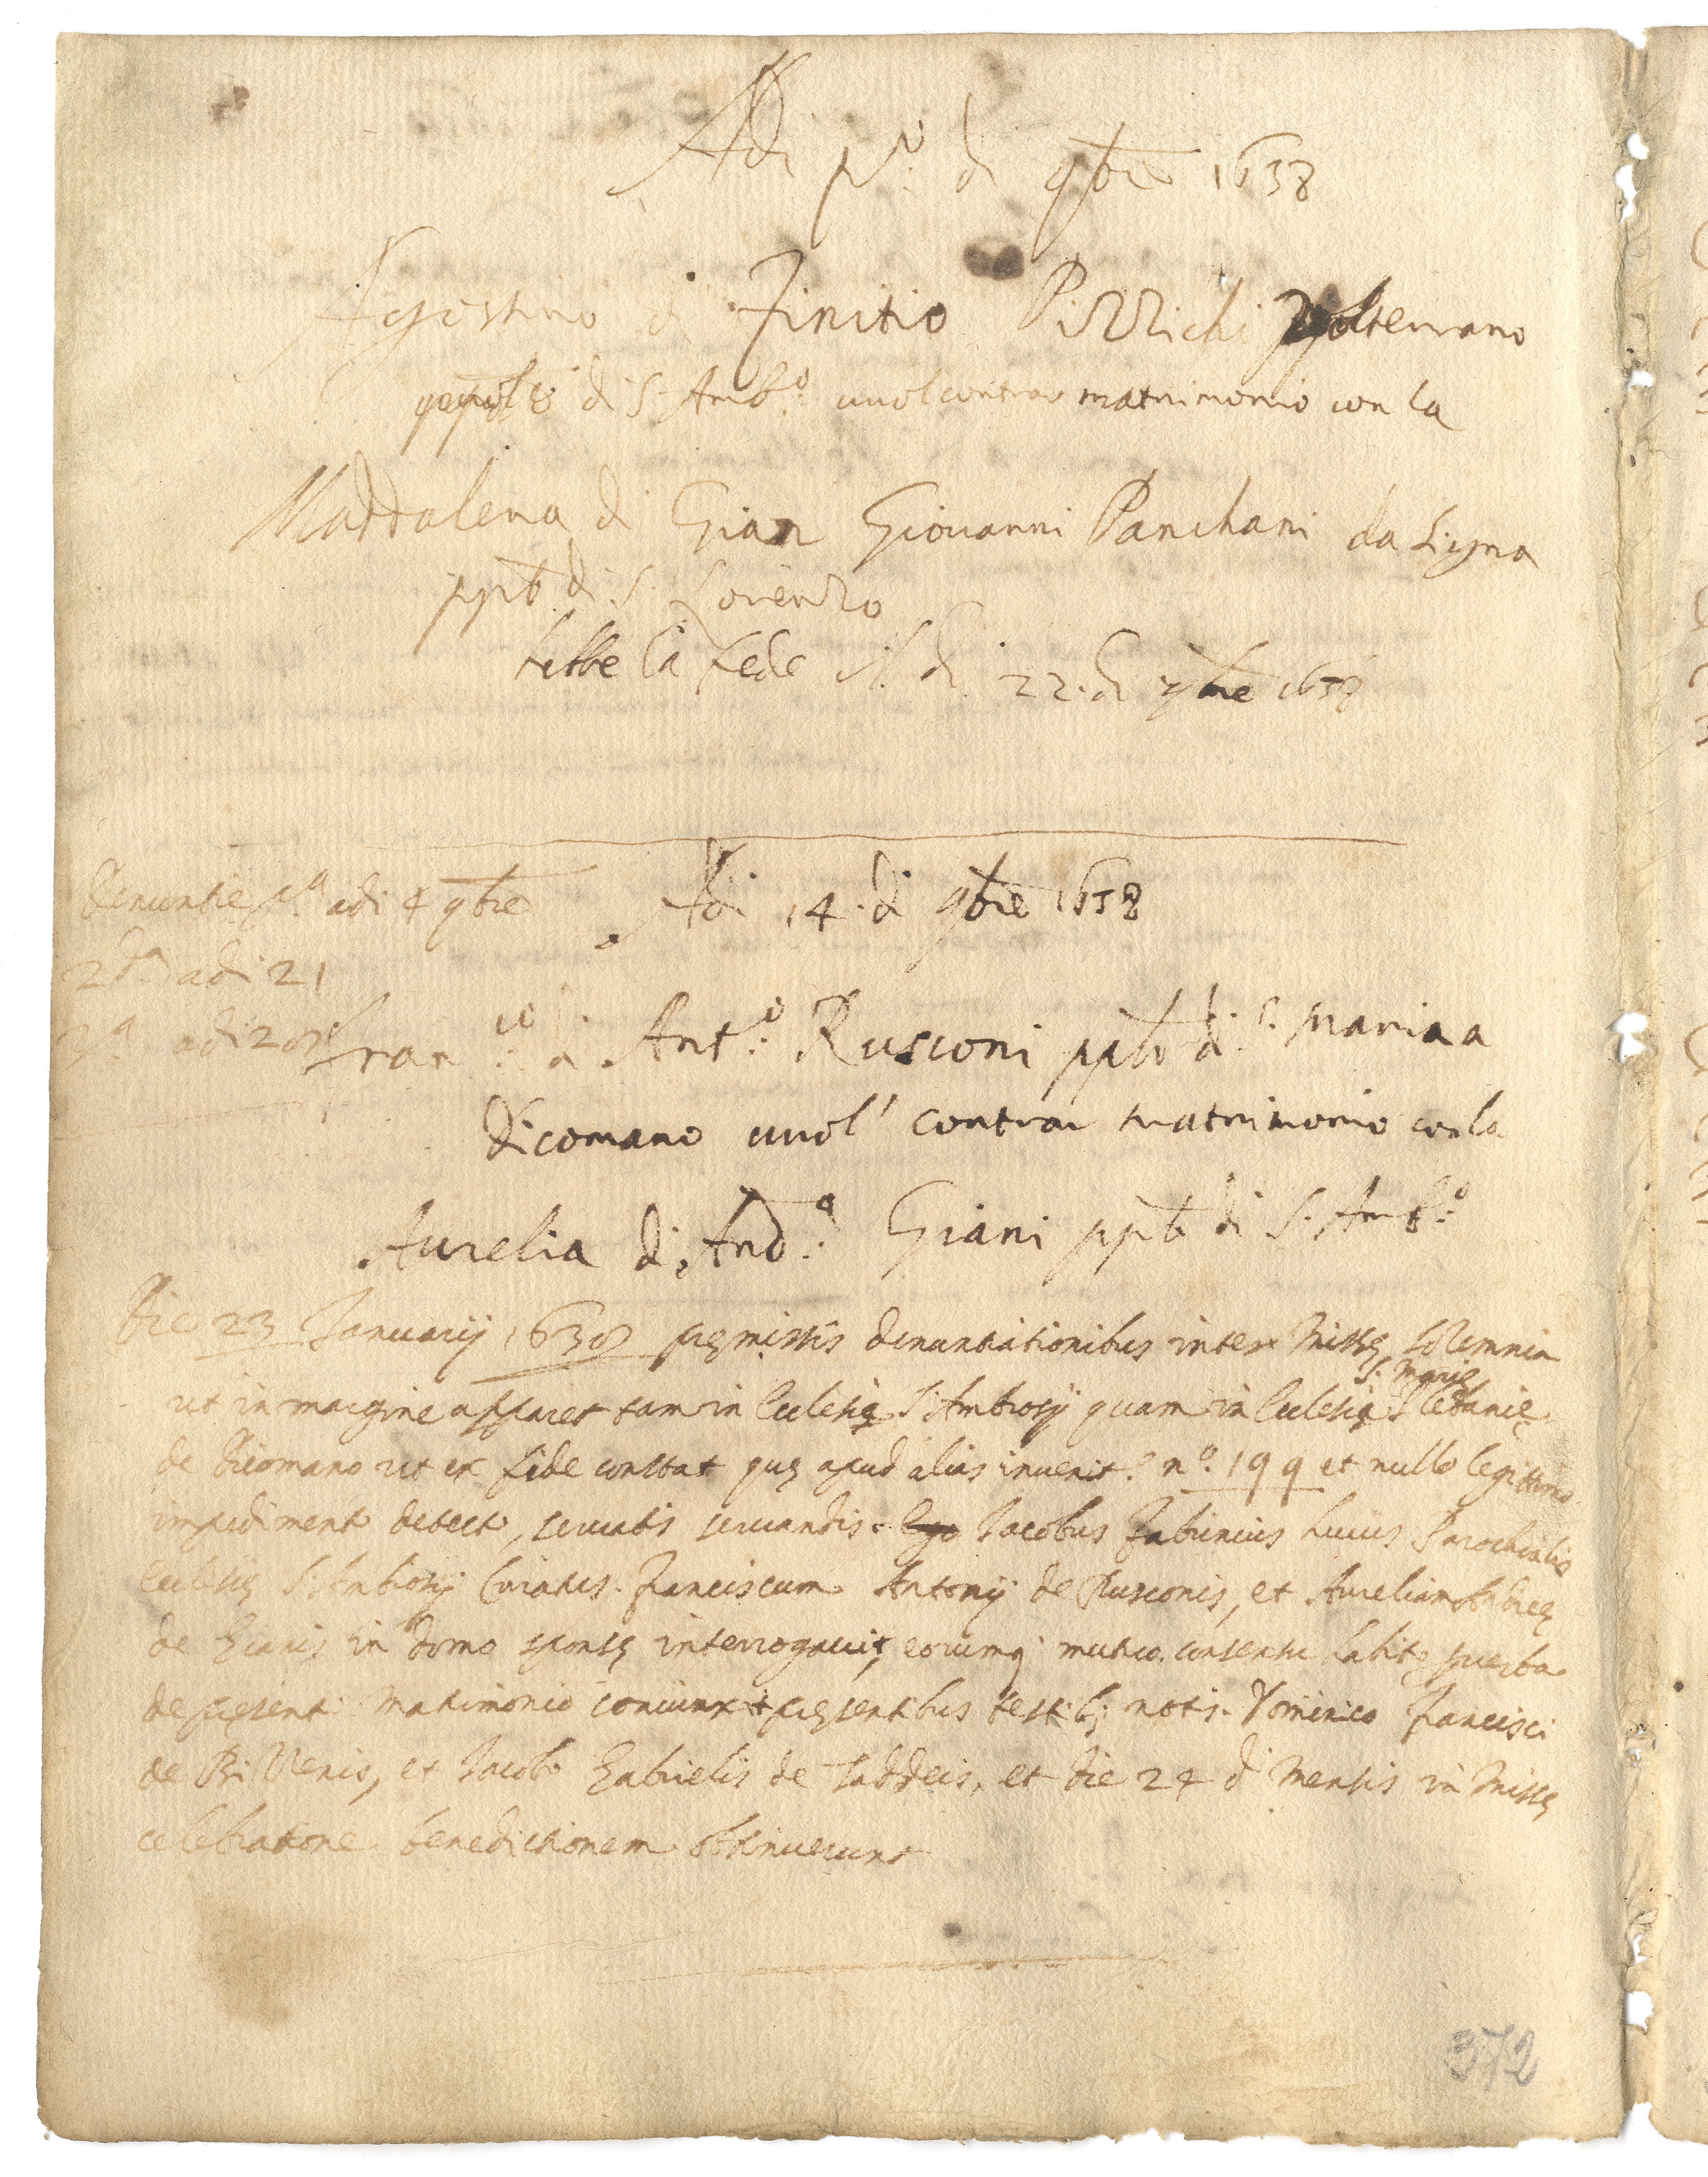 Adi p.º di 9bre 1638
Agostino di Finitio Pizzichi Volterrano
popolo di S. Amb.º vuol contrar matrimonio con la
Maddalena di Gian Giovanni Panchani da Signa
ppb di S. Lorenzo
hebbe la fede il di 22. di 9bre 1638
Denuntie p.ª adi 4 9bre
2da adi 21
3.ª adi 28
Adi 14 di 9bre 1638
Fran.co di Ant.º Rusconi ppto di S. Maria a
Dicomano vuol' contrar matrimonio con la
Aurelia di And.ª Giani ppb di S. Amb.º
Die 23 Januarij 1638 premissis denuntiationibus inter Missę solemnia
ut in margine apparet tam in Ecclesię S. Ambrosij quam in Ecclesię S. Marię
de Dicomano ut ex fide constat quę apud alias invenit.r nº. 199 et nullo legittimo
impedimento detecto, servatis servandis. Ego Jacobus Fabrinius huius Parochialis
Ecclesię S. Ambrosij Curatus. Franciscum Antonij de Rusconis, et Aureliam Andreę
de Gianis in domo sponsę interrogavit, eorumq mutuo consensu habito p verba
de presenti Matrimonio coniunxit pręsentibus testib; notis. Dominico Francisci
de, et Jacobo Gabrielis de Taddeis, et die 24 d. Mensis in Missę
celebratione benedictionem obtinuerunt
372